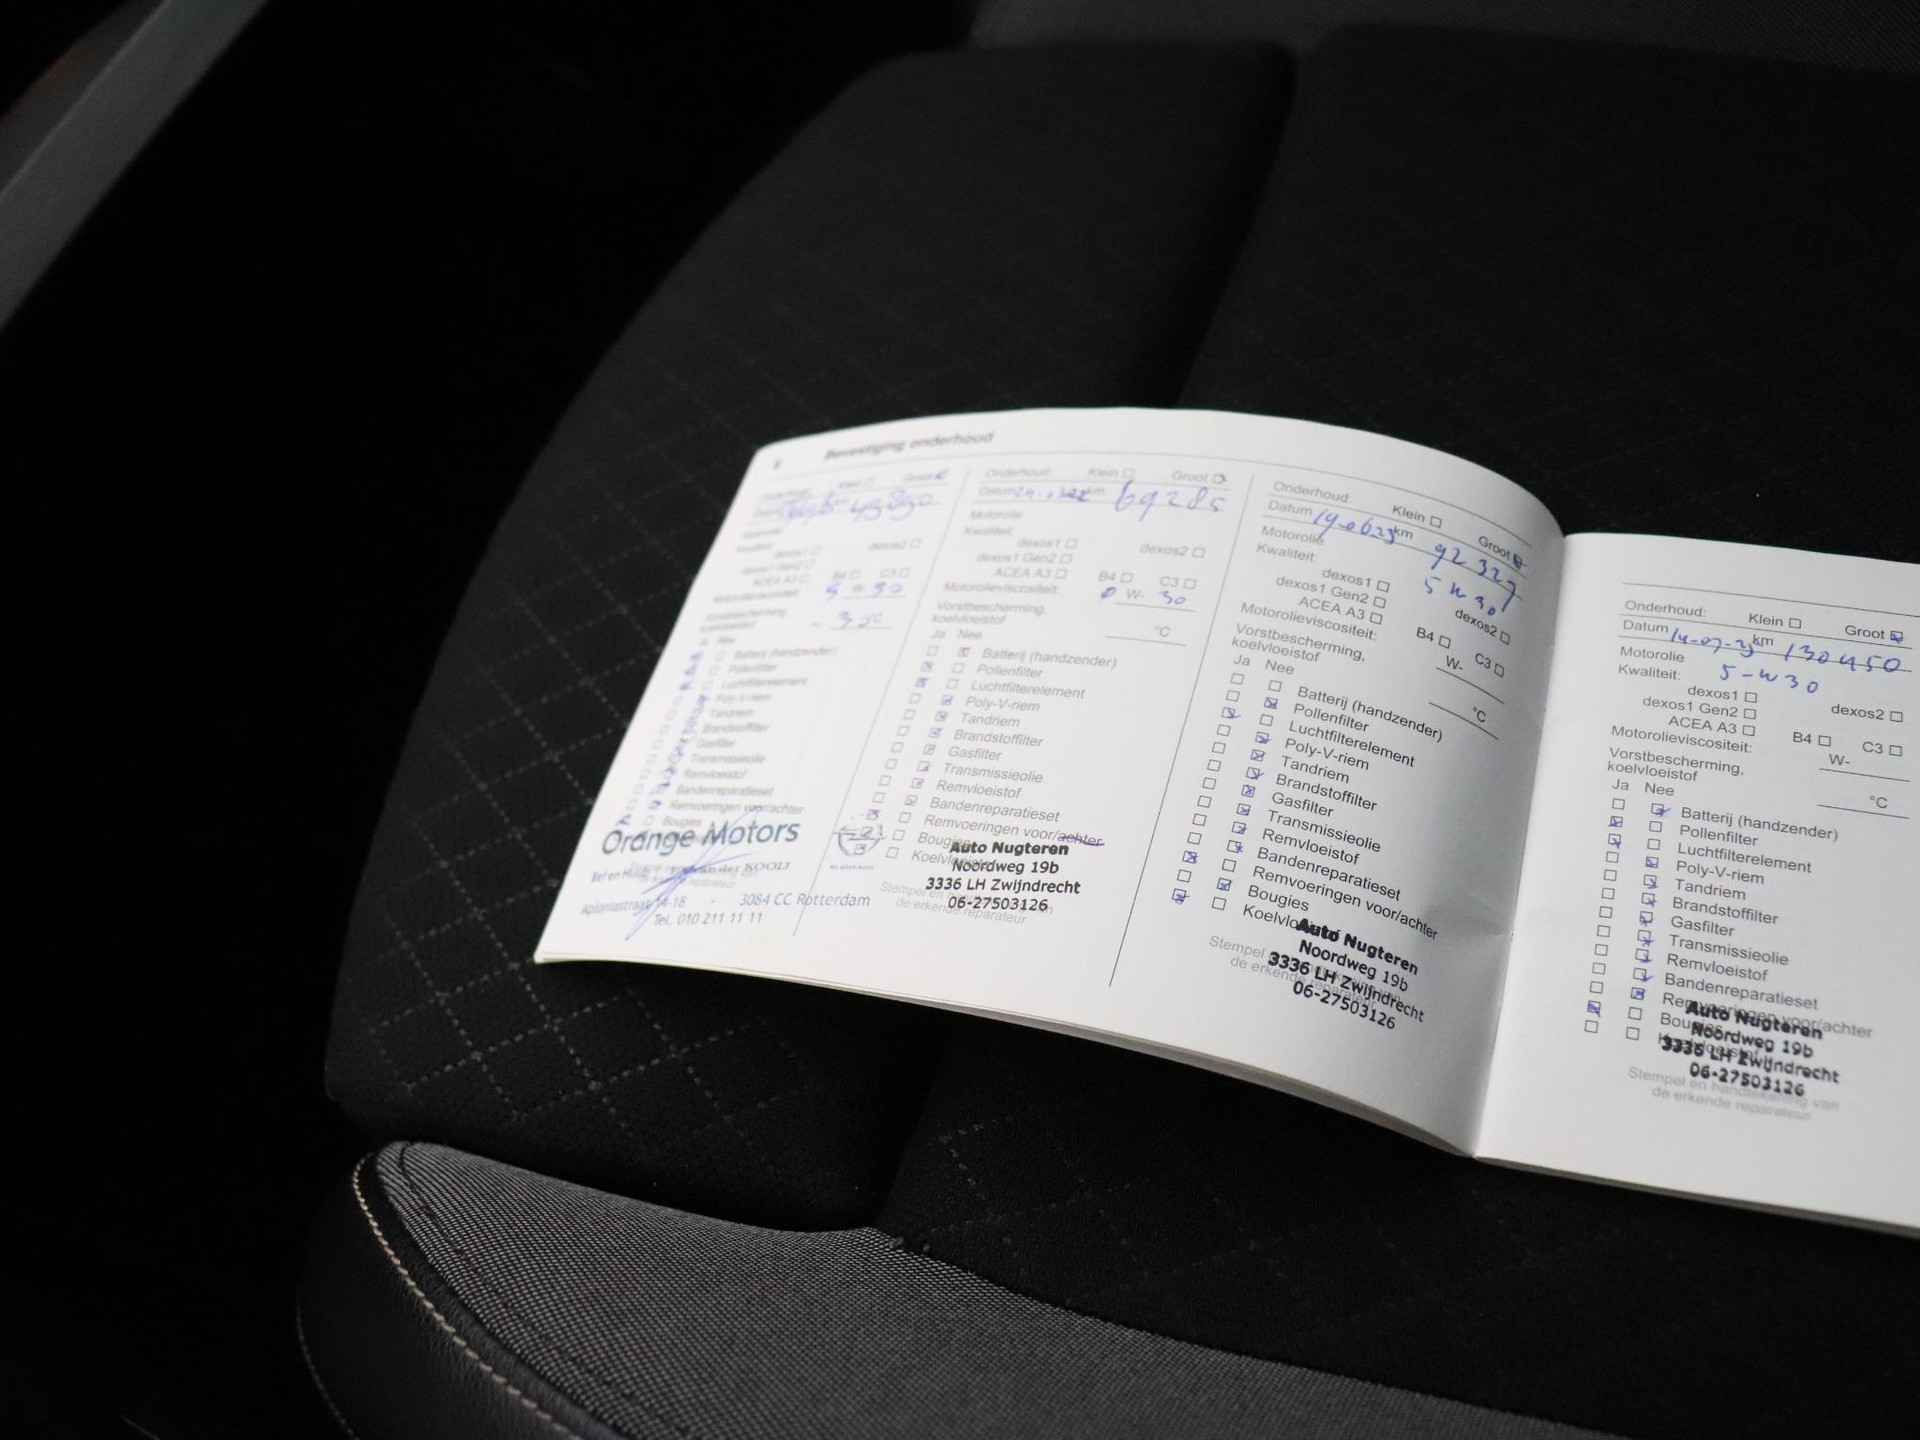 Bevestiging onderhoud
Groot
43830
dexos1
dexos2
dexos1 Gen2
ACEA A3
B4
C3
Batterij (handzender)
Pollenfilter
Luchtfilterelement
Poly-V-riem
Tandriem
Brandstoffilter
Gasfilter
Transmissieolie
Remvloeistof
Bandenreparatieset
Remvoeringen voor/achter
Bougies
Orange Motors
3084 CC Rotterdam
Tel. 010 211 11 11
Onderhoud:
Klein
Groot
Datum
km
69285
Motorolie
Kwaliteit:
dexos1
dexos2
dexos1 Gen2
ACEA A3
B4
C3
Motorolieviscositeit:
0 W- 30
Vorstbescherming,
koelvloeistof
°C
Ja Nee
Batterij (handzender)
Pollenfilter
Luchtfilterelement
Poly-V-riem
Tandriem
Brandstoffilter
Gasfilter
Transmissieolie
Remvloeistof
Bandenreparatieset
Remvoeringen voor/achter
Bougies
Auto Nugteren
Noordweg 19b
3336 LH Zwijndrecht
06-27503126
Onderhoud:
Klein
Groot
Datum 19-0623 km 92327
Motorolie
Kwaliteit:
5 W 30
dexos1
dexos2
dexos1 Gen2
ACEA A3
B4
C3
Motorolieviscositeit:
W-
Vorstbescherming,
koelvloeistof
°C
Ja Nee
Batterij (handzender)
Pollenfilter
Luchtfilterelement
Poly-V-riem
Tandriem
Brandstoffilter
Gasfilter
Transmissieolie
Remvloeistof
Bandenreparatieset
Remvoeringen voor/achter
Bougies
Auto Nugteren
Noordweg 19b
3336 LH Zwijndrecht
06-27503126
Stempel
de erkende
Onderhoud:
Klein
Groot
Datum 14-07-25 km 130450
Motorolie
Kwaliteit:
5-W30
dexos1
dexos2
dexos1 Gen2
ACEA A3
B4
C3
Motorolieviscositeit:
W-
Vorstbescherming,
koelvloeistof
°C
Ja Nee
Batterij (handzender)
Pollenfilter
Luchtfilterelement
Poly-V-riem
Tandriem
Brandstoffilter
Gasfilter
Transmissieolie
Remvloeistof
Bandenreparatieset
Remvoeringen voor/achter
Bougies
Auto Nugteren
Noordweg 19b
3336 LH Zwijndrecht
06-27503126
Stempel en handtekening van
de erkende reparateur